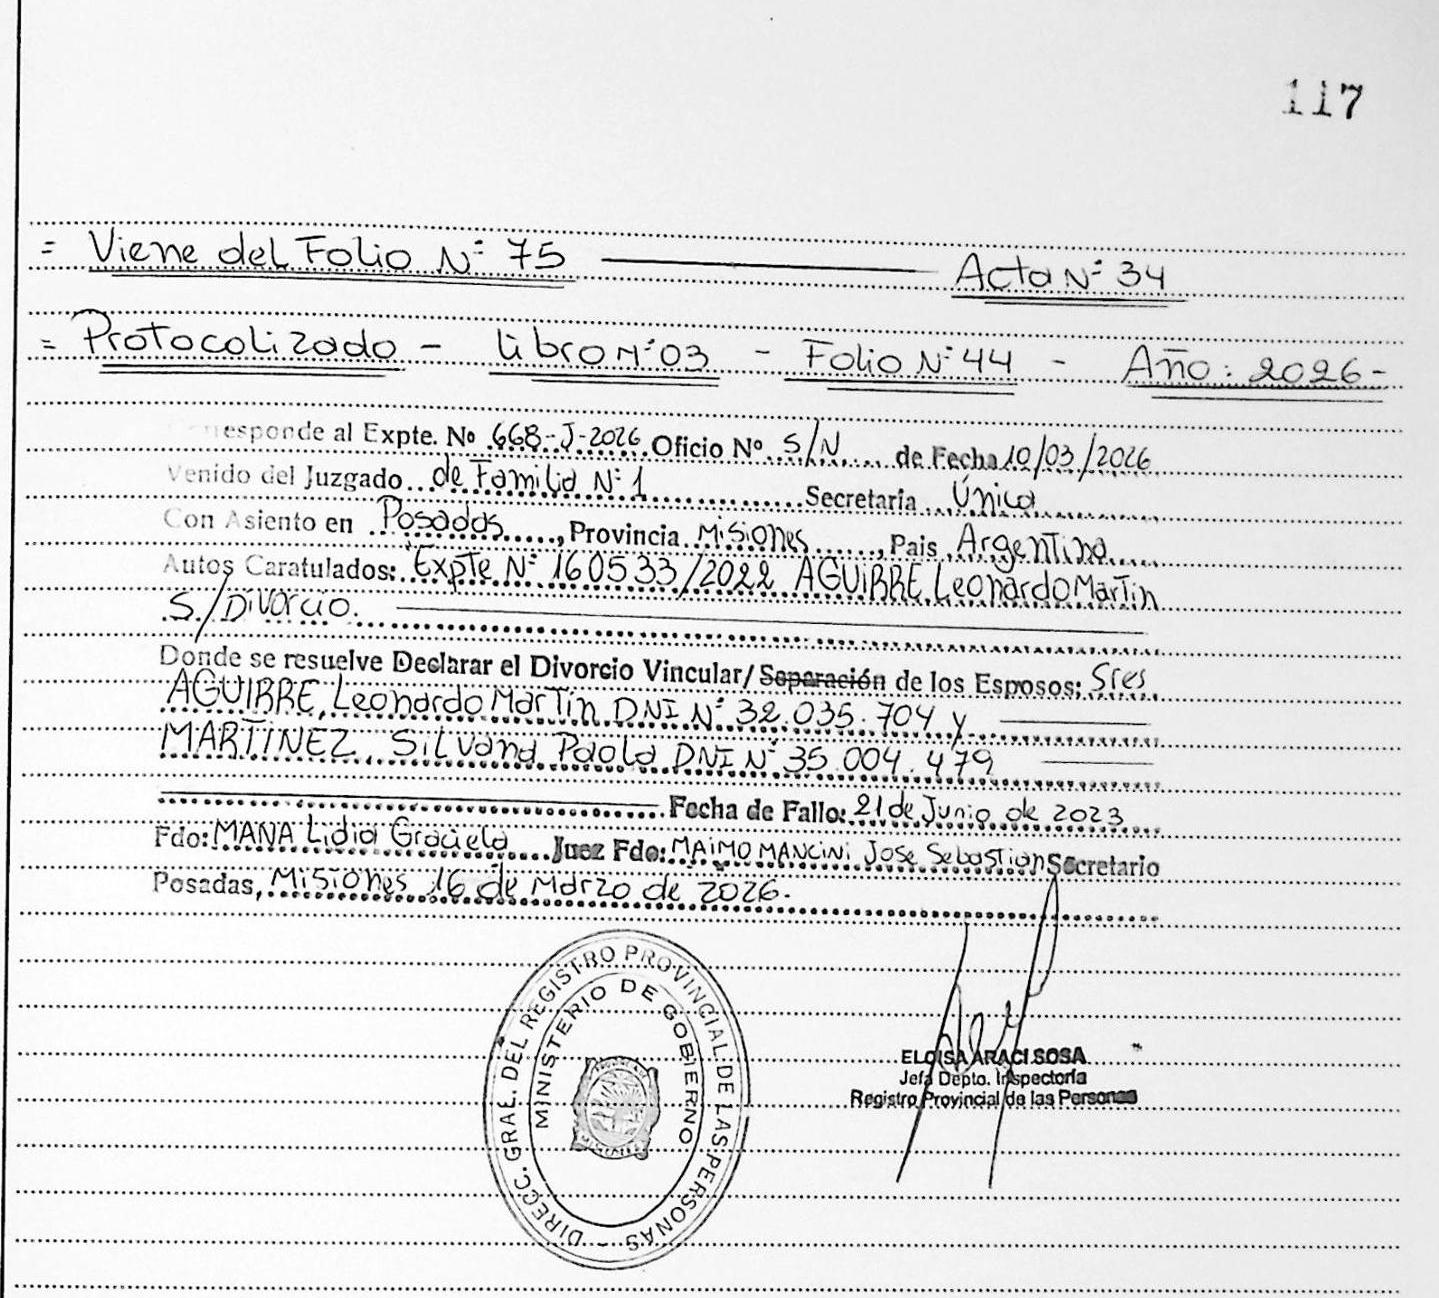 117
= Viene del Folio Nº 75 ——— Acta Nº 34
= Protocolizado - Libro Nº 03 - Folio Nº 44 - Año: 2026 -
esponde al Expte. Nº 668-J-2026 Oficio Nº S/N de Fecha 10/03/2026
Venido del Juzgado de Familia Nº 1 Secretaría Única
Con Asiento en Posadas, Provincia Misiones, Pais Argentina
Autos Caratulados: Expte Nº 160533/2022 AGUIRRE Leonardo Martin
S/Divorcio.
Donde se resuelve Declarar el Divorcio Vincular/ Separación de los Esposos: Sres
AGUIRRE, Leonardo Martin DNI Nº 32.035.704 y
MARTINEZ, Silvana Paola DNI Nº 35.004.479
Fecha de Fallo: 21 de Junio de 2023
Fdo: MANA Lidia Graciela Juez Fdo: MAIMO MANCINI Jose Sebastian Secretario
Posadas, Misiones 16 de Marzo de 2026.
DIRECC. GRAL. DEL REGISTRO PROVINCIAL DE LAS PERSONAS -
MINISTERIO DE GOBIERNO
MISIONES
ELOISA ARACI SOSA
Jefa Depto. Inspectoría
Registro Provincial de las Personas